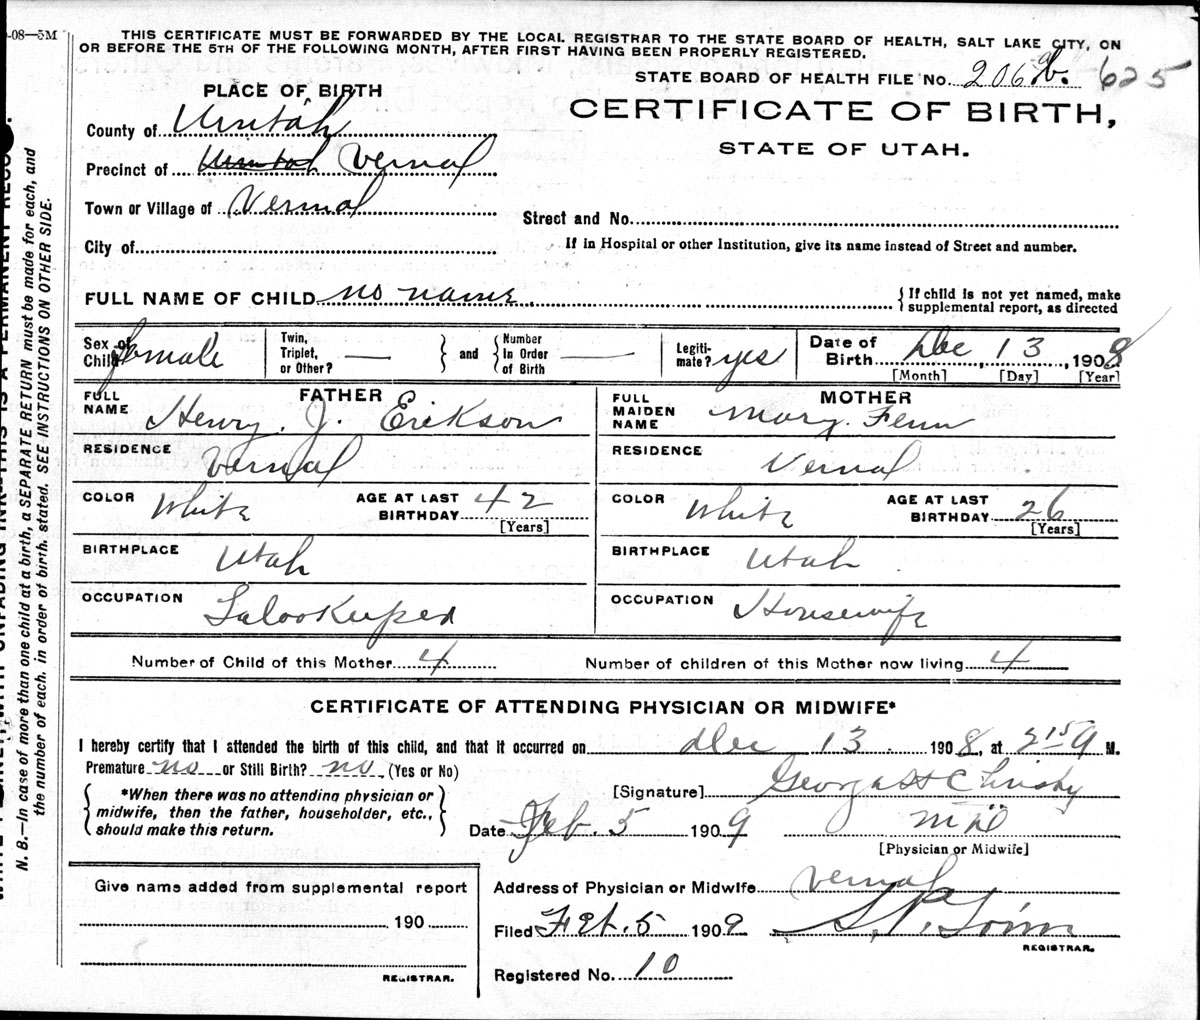 -08—5M
THIS CERTIFICATE MUST BE FORWARDED BY THE LOCAL REGISTRAR TO THE STATE BOARD OF HEALTH, SALT LAKE CITY, ON
OR BEFORE THE 5TH OF THE FOLLOWING MONTH, AFTER FIRST HAVING BEEN PROPERLY REGISTERED.
STATE BOARD OF HEALTH FILE No. 206 625
PLACE OF BIRTH
CERTIFICATE OF BIRTH,
STATE OF UTAH.
County of Uintah
Precinct of Vernal
Town or Village of Vernal
Street and No.
City of
If in Hospital or other Institution, give its name instead of Street and number.
FULL NAME OF CHILD no name. {If child is not yet named, make
supplemental report, as directed
Sex of Child female
Twin, Triplet, or Other? — } and { Number In Order of Birth —
Legiti- mate? yes
Date of Birth Dec, 13, 1908
[Month] [Day] [Year]
FATHER
FULL NAME Henry. J. Erikson
MOTHER
FULL MAIDEN NAME Mary. Fenn
RESIDENCE Vernal
RESIDENCE Vernal
COLOR White AGE AT LAST BIRTHDAY 42 [Years]
COLOR White AGE AT LAST BIRTHDAY 26 [Years]
BIRTHPLACE Utah
BIRTHPLACE Utah
OCCUPATION Salookeeper
OCCUPATION Housewife
Number of Child of this Mother 4
Number of children of this Mother now living 4
CERTIFICATE OF ATTENDING PHYSICIAN OR MIDWIFE*
I hereby certify that I attended the birth of this child, and that it occurred on Dec 13. 1908, at 2 15 a M.
Premature no or Still Birth? no. (Yes or No)
{ *When there was no attending physician or
midwife, then the father, householder, etc.,
should make this return. }
[Signature]
Date Feb. 5 1909 MD
[Physician or Midwife]
Give name added from supplemental report
190
REGISTRAR.
Address of Physician or Midwife Vernal
Filed Feb. 5 1909
REGISTRAR.
Registered No. 10
N. B.—In case of more than one child at a birth, a SEPARATE RETURN must be made for each, and
the number of each, in order of birth, stated. SEE INSTRUCTIONS ON OTHER SIDE.